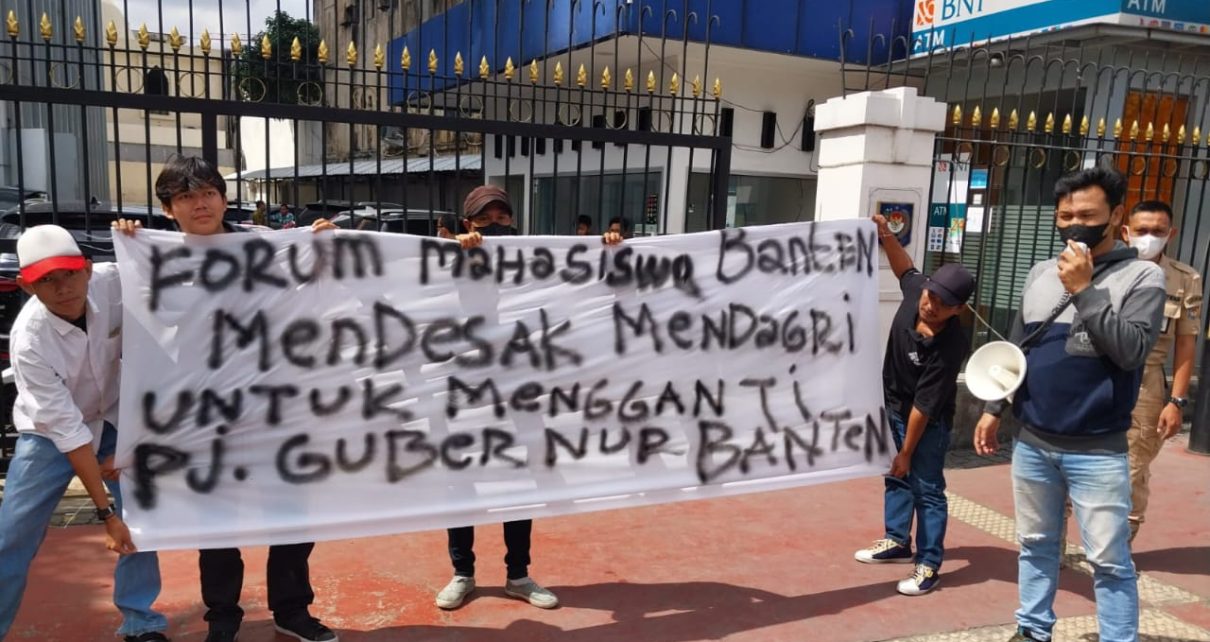 BNI
ATM
ATM
FORUM MAHASISWA BANTEN
MENDESAK MENDAGRI
UNTUK MENGGANTI
PJ. GUBERNUR BANTEN
BNI
ATM